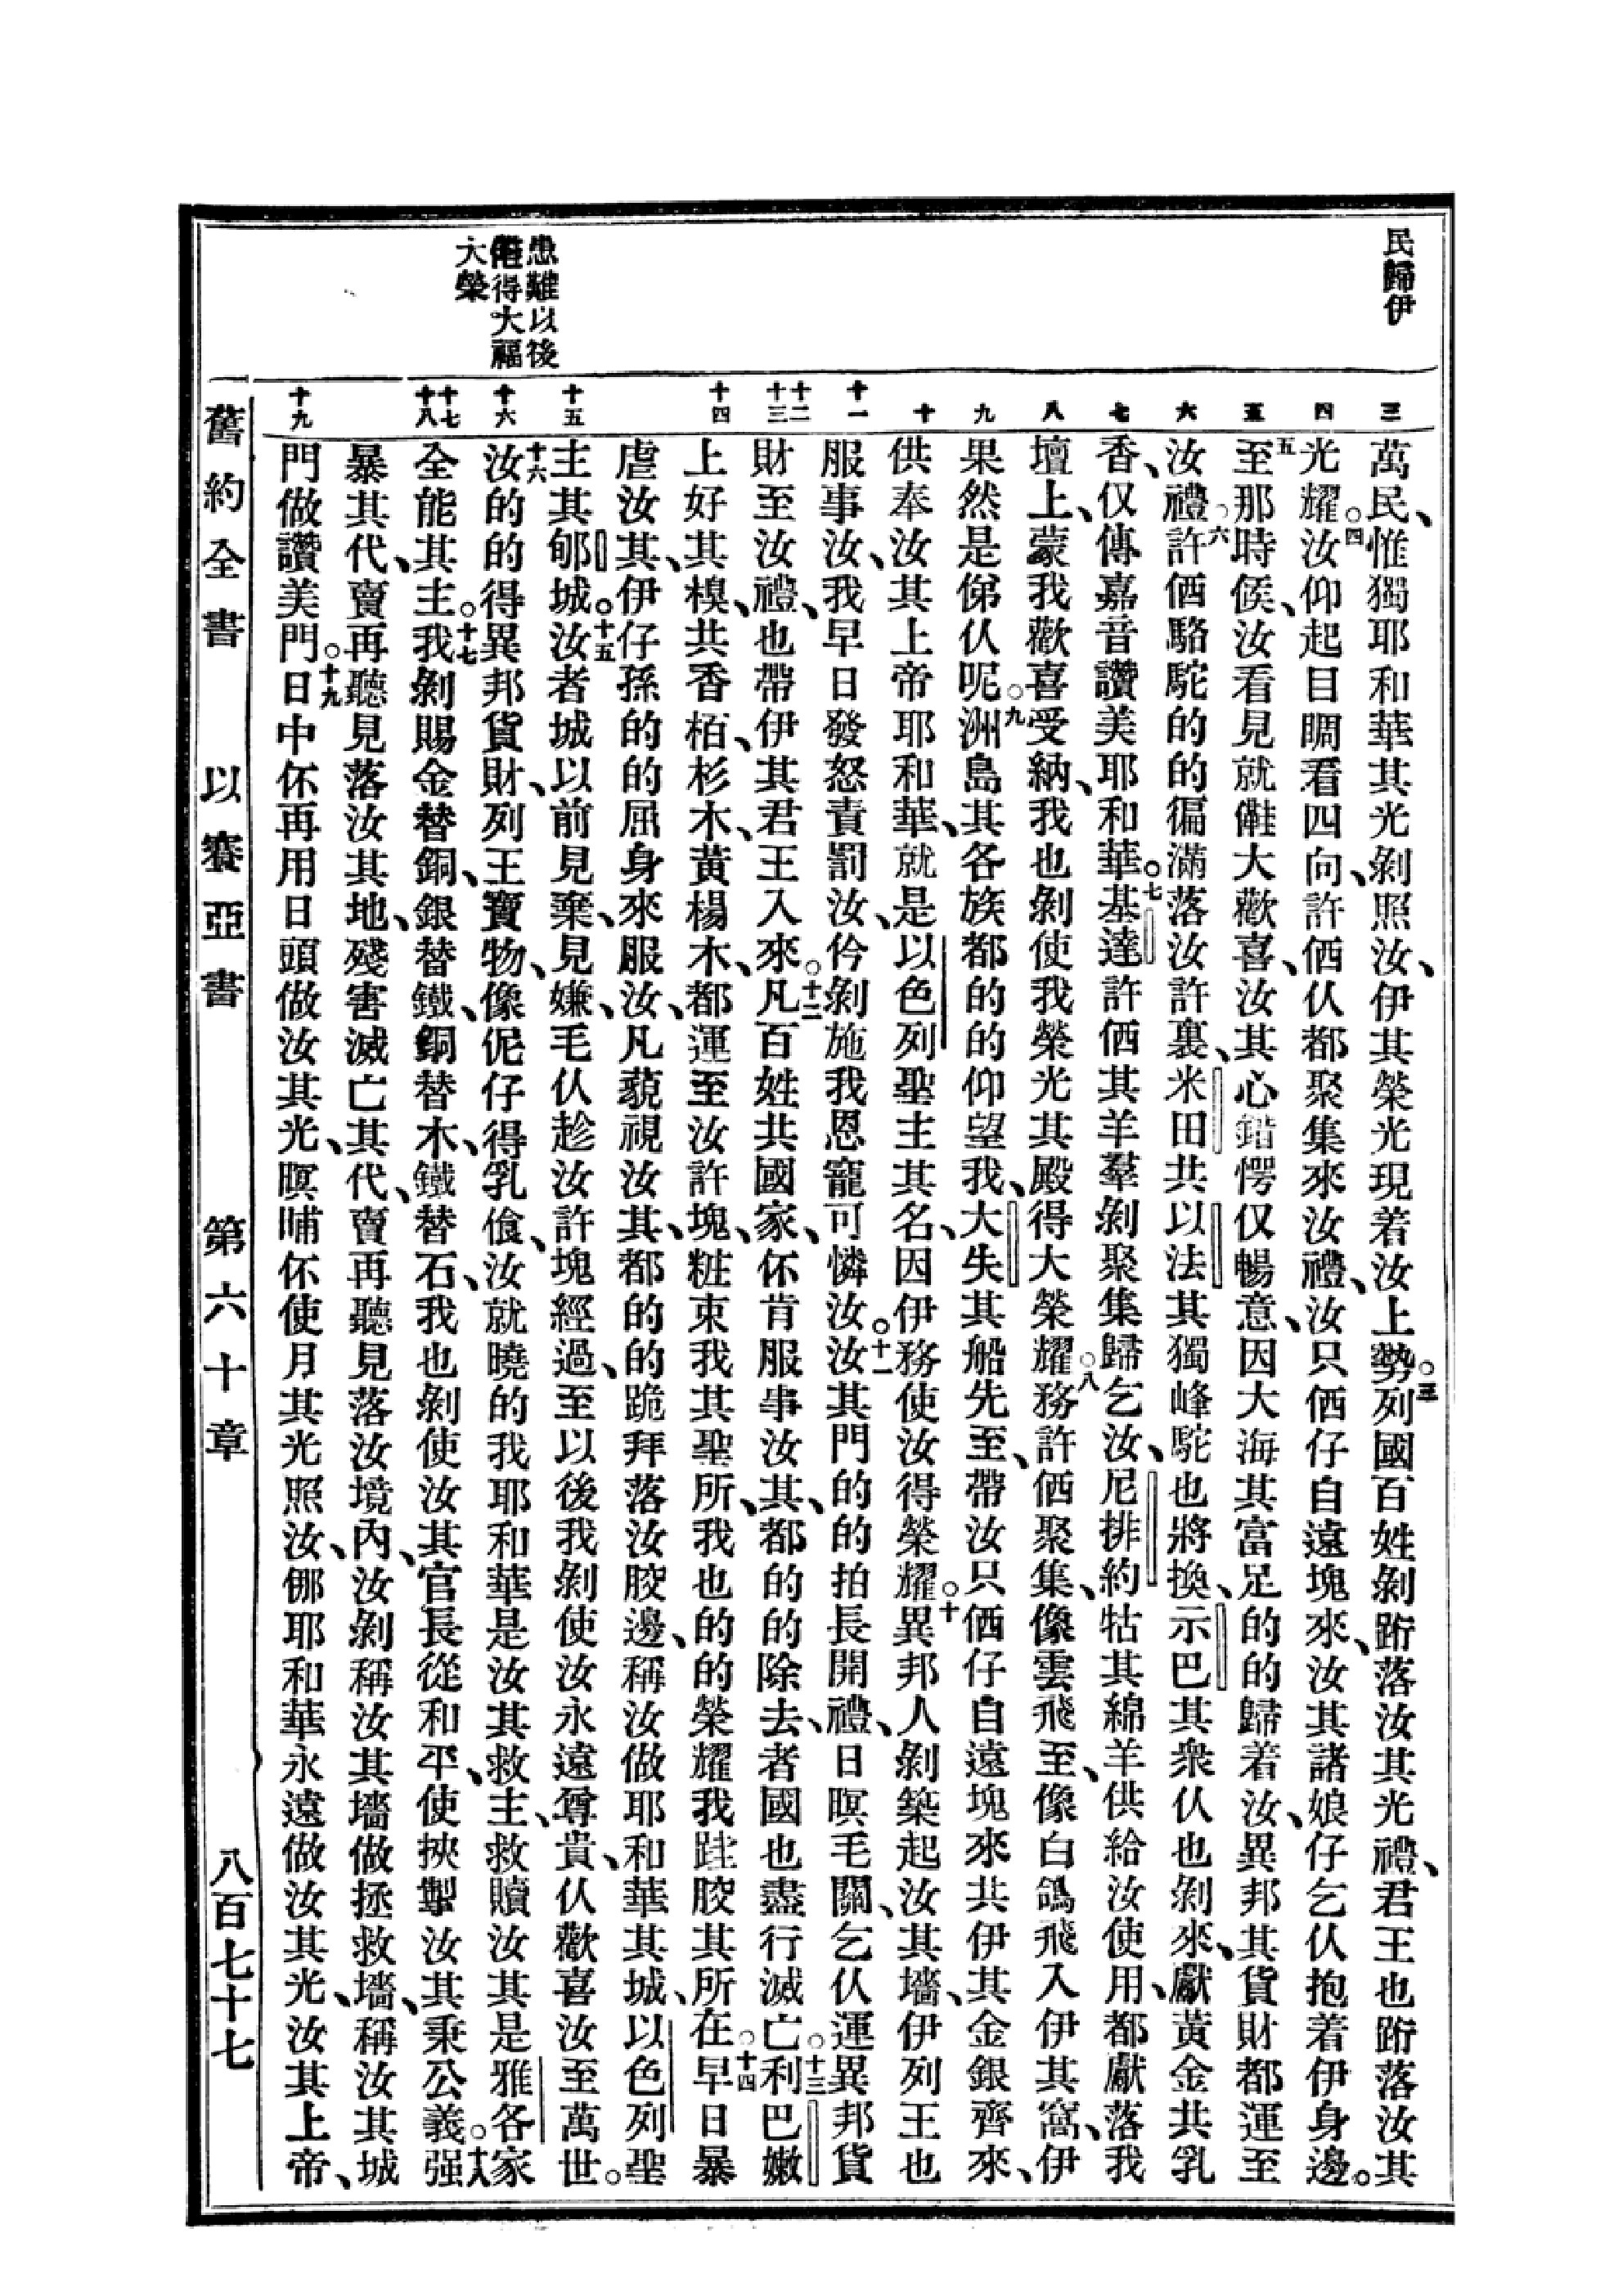 民歸伊
患難以後
僅得大福
大榮
三
四
五
六
七
八
九
十
十一
十二
十三
十四
十五
十六
十七
十八
十九
萬民、惟獨耶和華其光剝照汝、伊其榮光現着汝上勢。三列國百姓剝跨落汝其光禮、君王也跨落汝其
光耀。四汝仰起目瞷看四向、許𠲥仈都聚集來汝禮、汝只𠲥仔自遠塊來、汝其諸娘仔乞仈抱着伊身邊。
五至那時候、汝看見就儺大歡喜、汝其心錯愕仅暢意、因大海其富足的的歸着汝、異邦其貨財都運至
汝禮。六許𠲥駱駝的的徧滿落汝許裏、米田共以法其獨峰駝也將換、示巴其衆仈也剝來、獻黃金共乳
香、仅傳嘉音讚美耶和華。七基達許𠲥其羊羣剝聚集歸乞汝、尼排約牯其綿羊供給汝使用、都獻落我
壇上、蒙我歡喜受納、我也剝使我榮光其殿得大榮耀。八務許𠲥聚集、像雲飛至、像白鴿飛入伊其窩、伊
果然是俤仈呢。九洲島其各族都的的仰望我、大失其船先至、帶汝只𠲥仔自遠塊來共伊其金銀齊來、
供奉汝其上帝耶和華、就是以色列聖主其名、因伊務使汝得榮耀。十異邦人剝築起汝其墻、伊列王也
服事汝、我早日發怒責罰汝、仱剝施我恩寵可憐汝。十一汝其門的的拍長開禮、日暝毛關、乞仈運異邦貨
財至汝禮、也帶伊其君王入來。十二凡百姓共國家、伓肯服事汝其、都的的除去、者國也盡行滅亡。十三利巴嫩
上好其、槼、共香栢、杉木、黃楊木、都運至汝許塊、粧束我其聖所、我也的的榮耀我跬骹其所在。十四早日暴
虐汝其、伊仔孫的的屈身來服汝、凡藐視汝其、都的的跪拜落汝骹邊、稱汝做耶和華其城、以色列聖
主其郇城。十五汝者城以前見棄、見嫌、毛仈趁汝許塊經過、至以後我剝使汝永遠尊貴、仈歡喜汝至萬世。
十六汝的的得異邦貨財、列王寶物、像伲仔得乳飡、汝就曉的我耶和華是汝其救主、救贖汝其是雅各家
全能其主。十七我剝賜金替銅、銀替鐵、銅替木、鐵替石、我也剝使汝其官長從和平、使挾掣汝其秉公義。十八强
暴其代、賣再聽見落汝其地、殘害滅亡其代、賣再聽見落汝境內、汝剝稱汝其墻做拯救墻、稱汝其城
門做讚美門。十九日中伓再用日頭做汝其光、暝晡伓使月其光照汝、𠆧耶和華永遠做汝其光、汝其上帝、
舊約全書　以賽亞書　第六十章　八百七十七